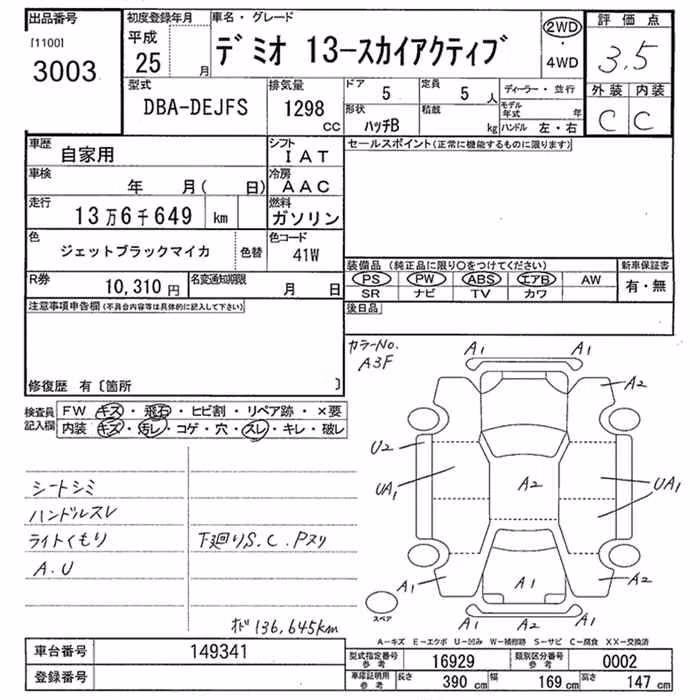 出品番号
[1100]
3003
初度登録年月
平成
25 月
車名・グレード
デミオ 13-スカイアクティブ
2WD
・
4WD
評価点
3.5
外装 内装
C C
型式
DBA-DEJFS
排気量
1298
CC
ドア 5
定員 5 人
形状
ハッチB
積載
kg
ディーラー・並行
モデル年式 年
ハンドル 左・右
車歴
自家用
シフト
IAT
車検
年 月( 日)
冷房
AAC
走行
13万6千649 km
燃料
ガソリン
色
ジェットブラックマイカ
色替
色コード
41W
R券
10,310 円
名変通知期限
月 日
セールスポイント(正常に機能するものに限ります)
装備品(純正品に限り○をつけてください)
PS PW ABS エアB AW
SR ナビ TV カワ
新車保証書
有・無
後日品
注意事項申告欄(不具合内容等は具体的に記入して下さい)
修復歴 有〔箇所 〕
検査員
記入欄
FW キズ・飛石・ヒビ割・リペア跡・×要
内装 キズ・汚レ・コゲ・穴・スレ・キレ・破レ
シートシミ
ハンドルスレ
ライトくもり
A.U
下廻りS.C.Pヌリ
オド136,645km
カラーNo.
A3F
A1 A1
A2
U2
UA1
A2
UA1
A1
A1
A2
A1 A2 A1
スペア
A-キズ E-エクボ U-凹み W-補修跡 S-サビ C-腐食 XX-交換済
車台番号 149341
登録番号
型式指定番号
参考
16929
類別区分番号
参考
0002
車庫証明用
参考
長さ 390 cm
幅 169 cm
高さ 147 cm